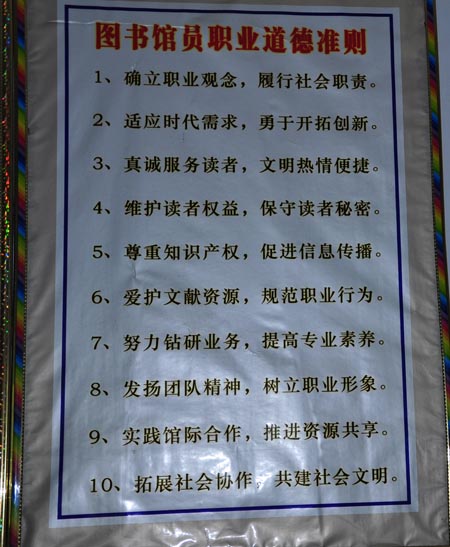 图书馆员职业道德准则
1、确立职业观念，履行社会职责。
2、适应时代需求，勇于开拓创新。
3、真诚服务读者，文明热情便捷。
4、维护读者权益，保守读者秘密。
5、尊重知识产权，促进信息传播。
6、爱护文献资源，规范职业行为。
7、努力钻研业务，提高专业素养。
8、发扬团队精神，树立职业形象。
9、实践馆际合作，推进资源共享。
10、拓展社会协作，共建社会文明。